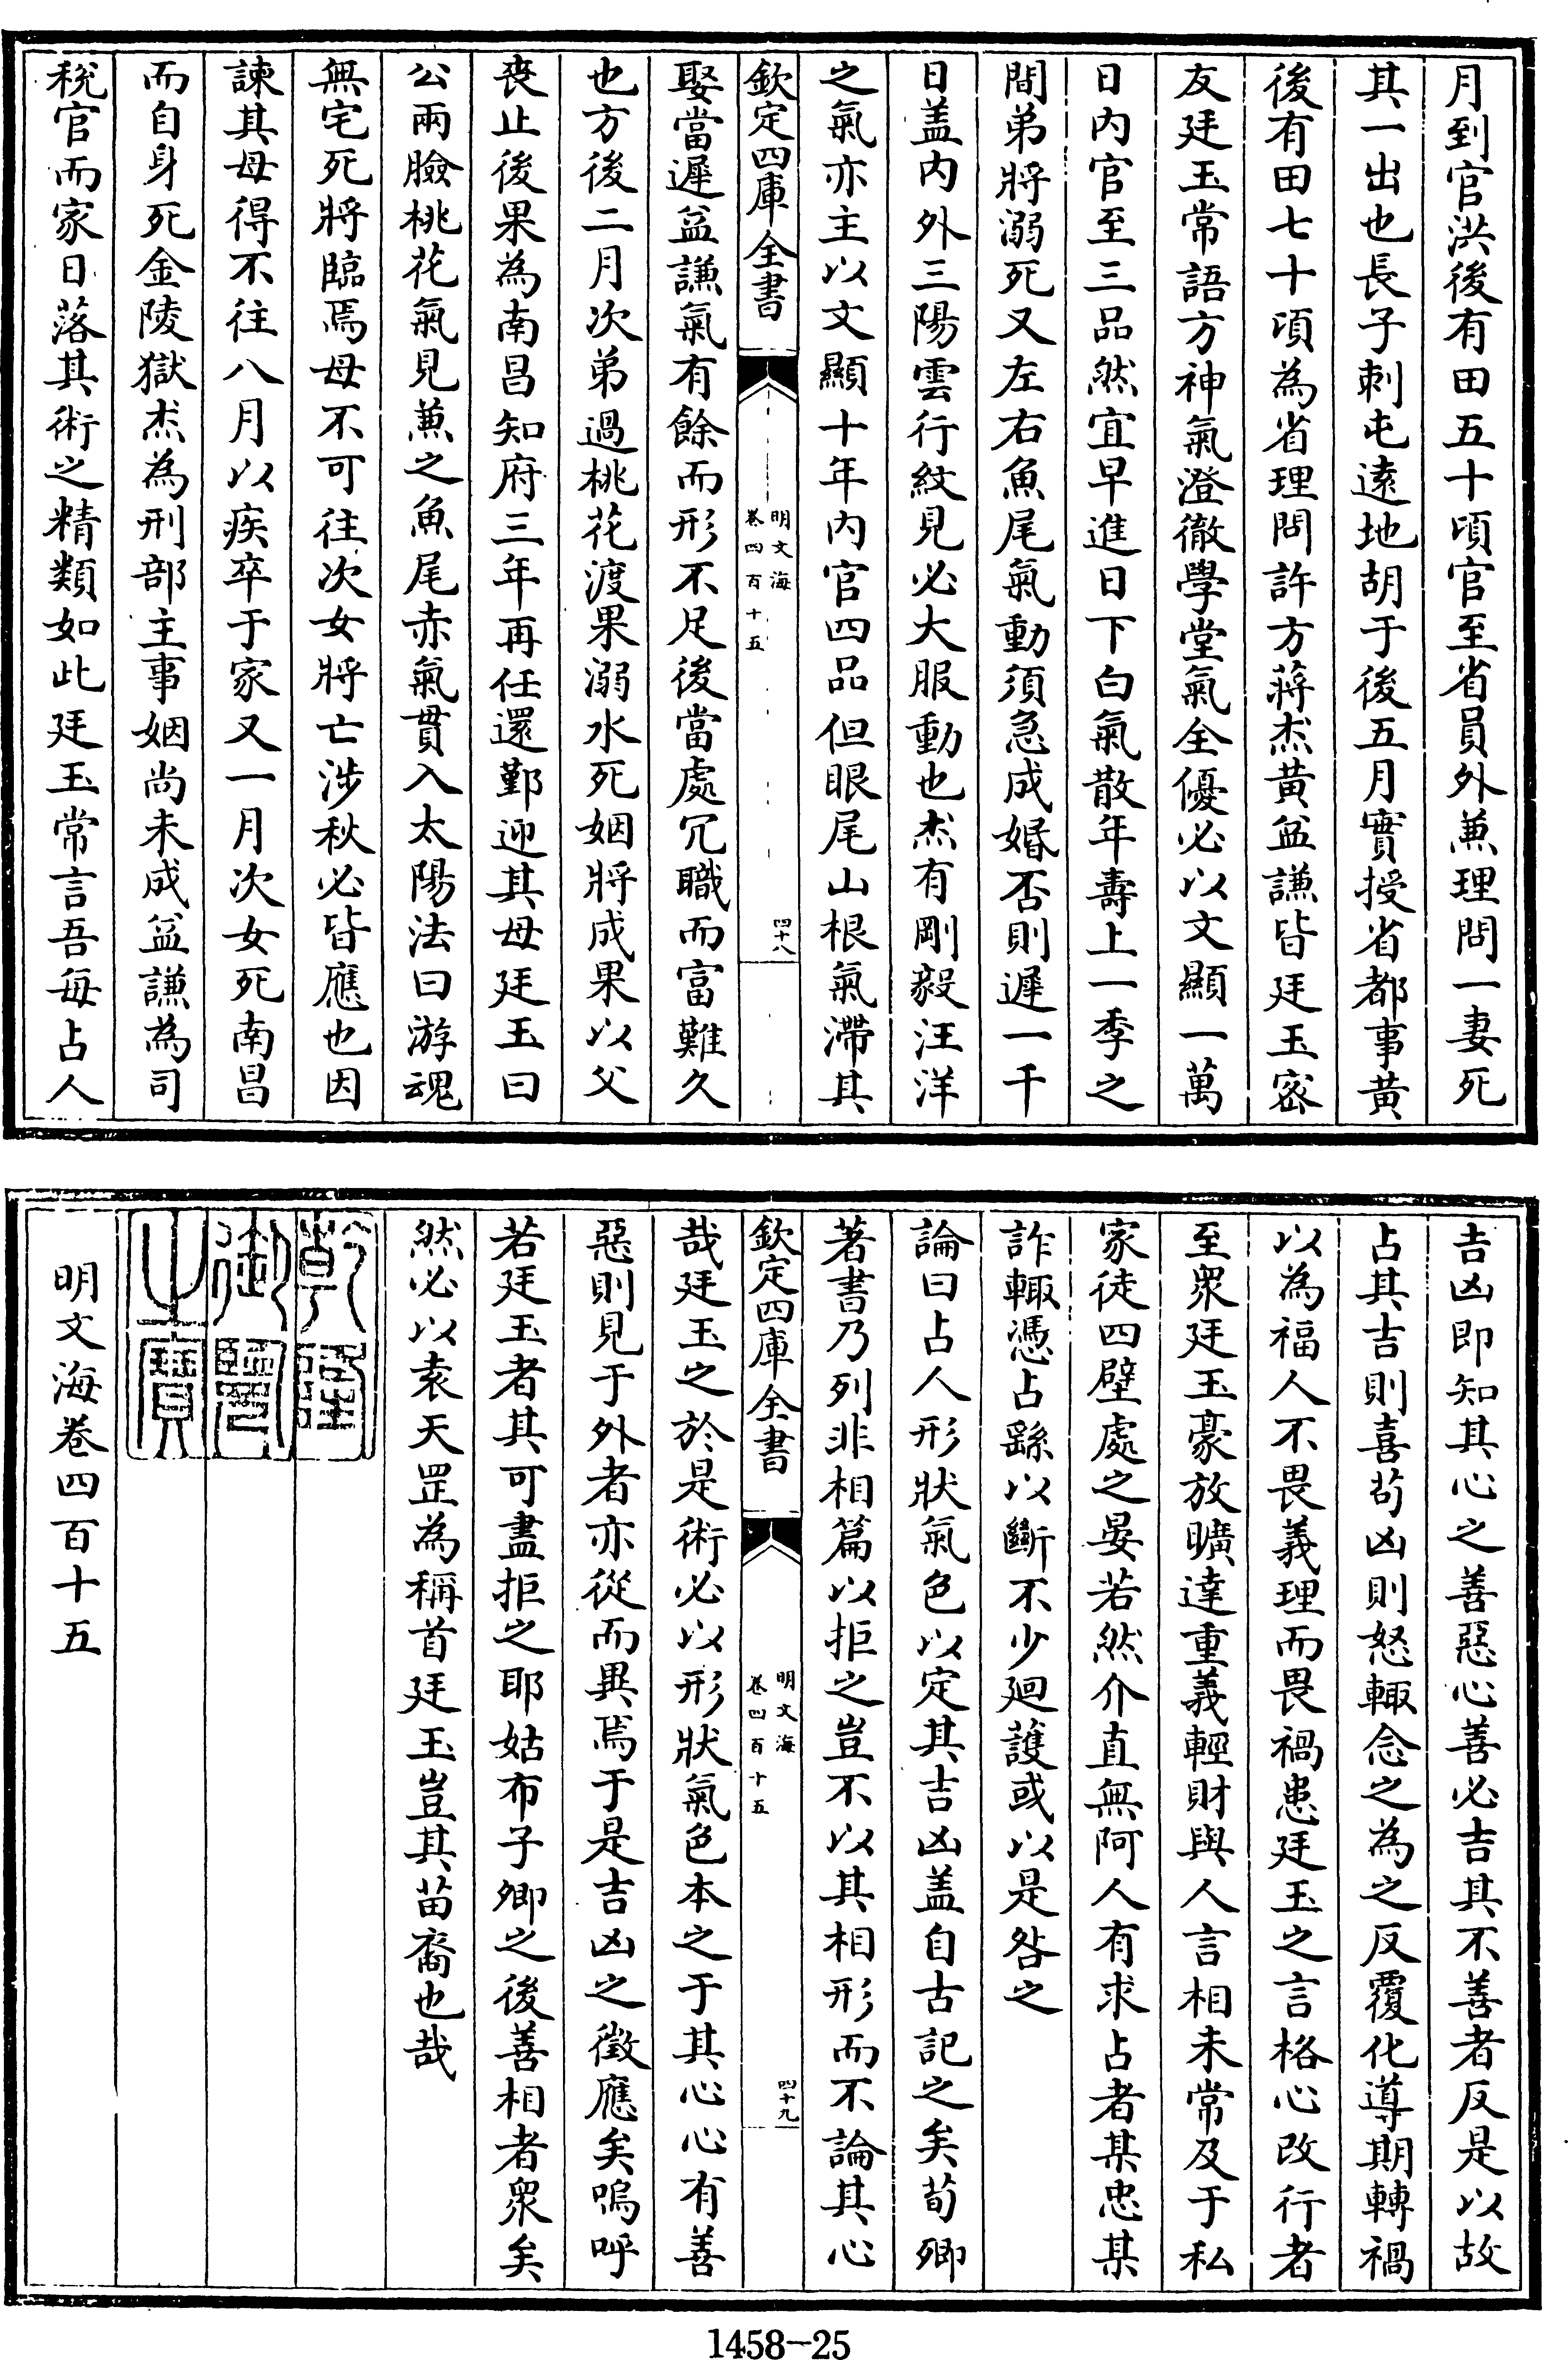 月到官洪後有田五十頃官至省員外兼理問一妻死
其一出也長子刺屯遠地胡于後五月實授省都事黄
後有田七十頃為省理問許方蔣杰黄盆謙皆廷玉密
友廷玉常語方神氣澄徹學堂氣全優必以文顯一萬
日内官至三品然宜早進日下白氣散年壽上一季之
間弟將溺死又左右魚尾氣動須急成婚否則遲一千
日盖内外三陽雲行紋見必大服動也杰有剛毅汪洋
之氣亦主以文顯十年内官四品但眼尾山根氣滯其
欽定四庫全書
明文海
卷四百十五
四十八
娶當遲盆謙氣有餘而形不足後當處冗職而富難久
也方後二月次弟過桃花渡果溺水死姻將成果以父
喪止後果為南昌知府三年再任還鄞迎其母廷玉曰
公兩臉桃花氣見兼之魚尾赤氣貫入太陽法曰游魂
無宅死將臨焉母不可往次女將亡涉秋必皆應也因
諫其母得不往八月以疾卒于家又一月次女死南昌
而自身死金陵獄杰為刑部主事姻尚未成盆謙為司
稅官而家日落其術之精類如此廷玉常言吾每占人
吉凶即知其心之善惡心善必吉其不善者反是以故
占其吉則喜茍凶則怒輙念之為之反覆化導期轉禍
以為福人不畏義理而畏禍患廷玉之言格心改行者
至衆廷玉豪放曠達重義輕財與人言相未常及于私
家徒四壁處之晏若然介直無阿人有求占者某忠某
詐輙憑占繇以斷不少廻護或以是咎之
論曰占人形狀氣色以定其吉凶盖自古記之矣荀卿
著書乃列非相篇以拒之豈不以其相形而不論其心
欽定四庫全書
明文海
卷四百十五
四十九
哉廷玉之於是術必以形狀氣色本之于其心心有善
惡則見于外者亦從而異焉于是吉凶之徵應矣嗚呼
若廷玉者其可盡拒之耶姑布子卿之後善相者衆矣
然必以袁天罡為稱首廷玉豈其苗裔也哉
乾隆
御覽
之寶
明文海卷四百十五
1458-25